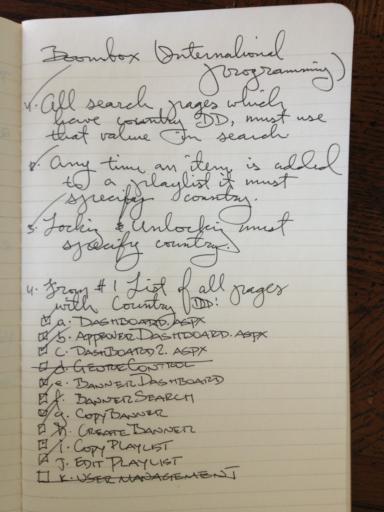 Boombox (International
programming)
1. All search pages which
have country DD, must use
that value in search
2. Any time an item is added
to a playlist it must
specify country.
3. Locking & Unlocking must
specify country.
4. From #1 List of all pages
with Country DD:
a. DASHBOARD.ASPX
b. APPROVERDASHBOARD.ASPX
c. DASHBOARD2.ASPX
d. GENRECONTROL
e. BANNERDASHBOARD
f. BANNERSEARCH
g. COPYBANNER
h. CREATEBANNER
i. COPYPLAYLIST
j. EDIT PLAYLIST
k. USER MANAGEMENT